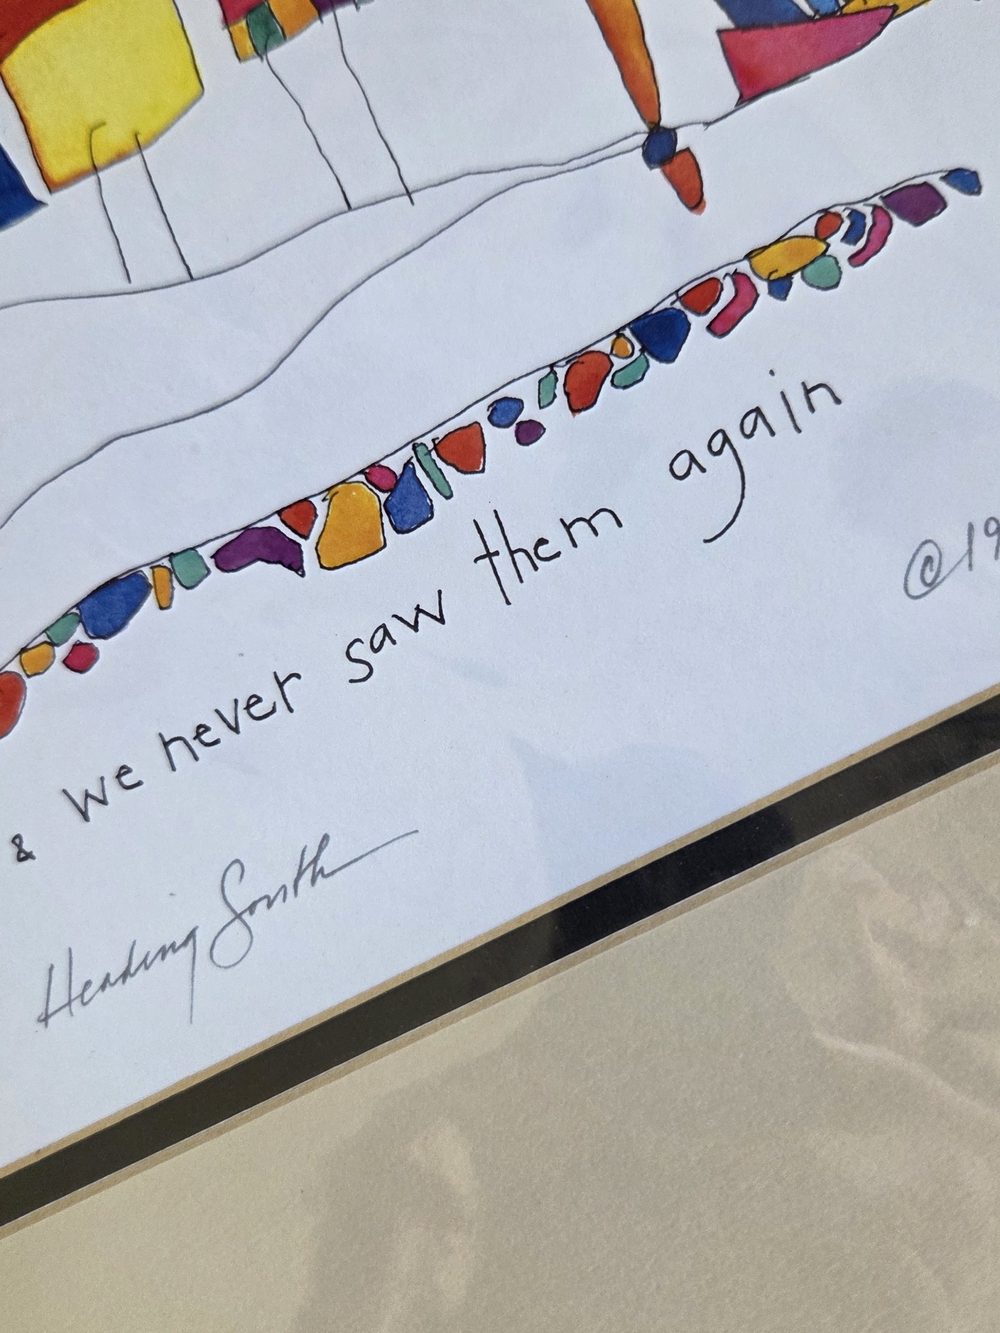 & we never saw them again
©19
Heading South